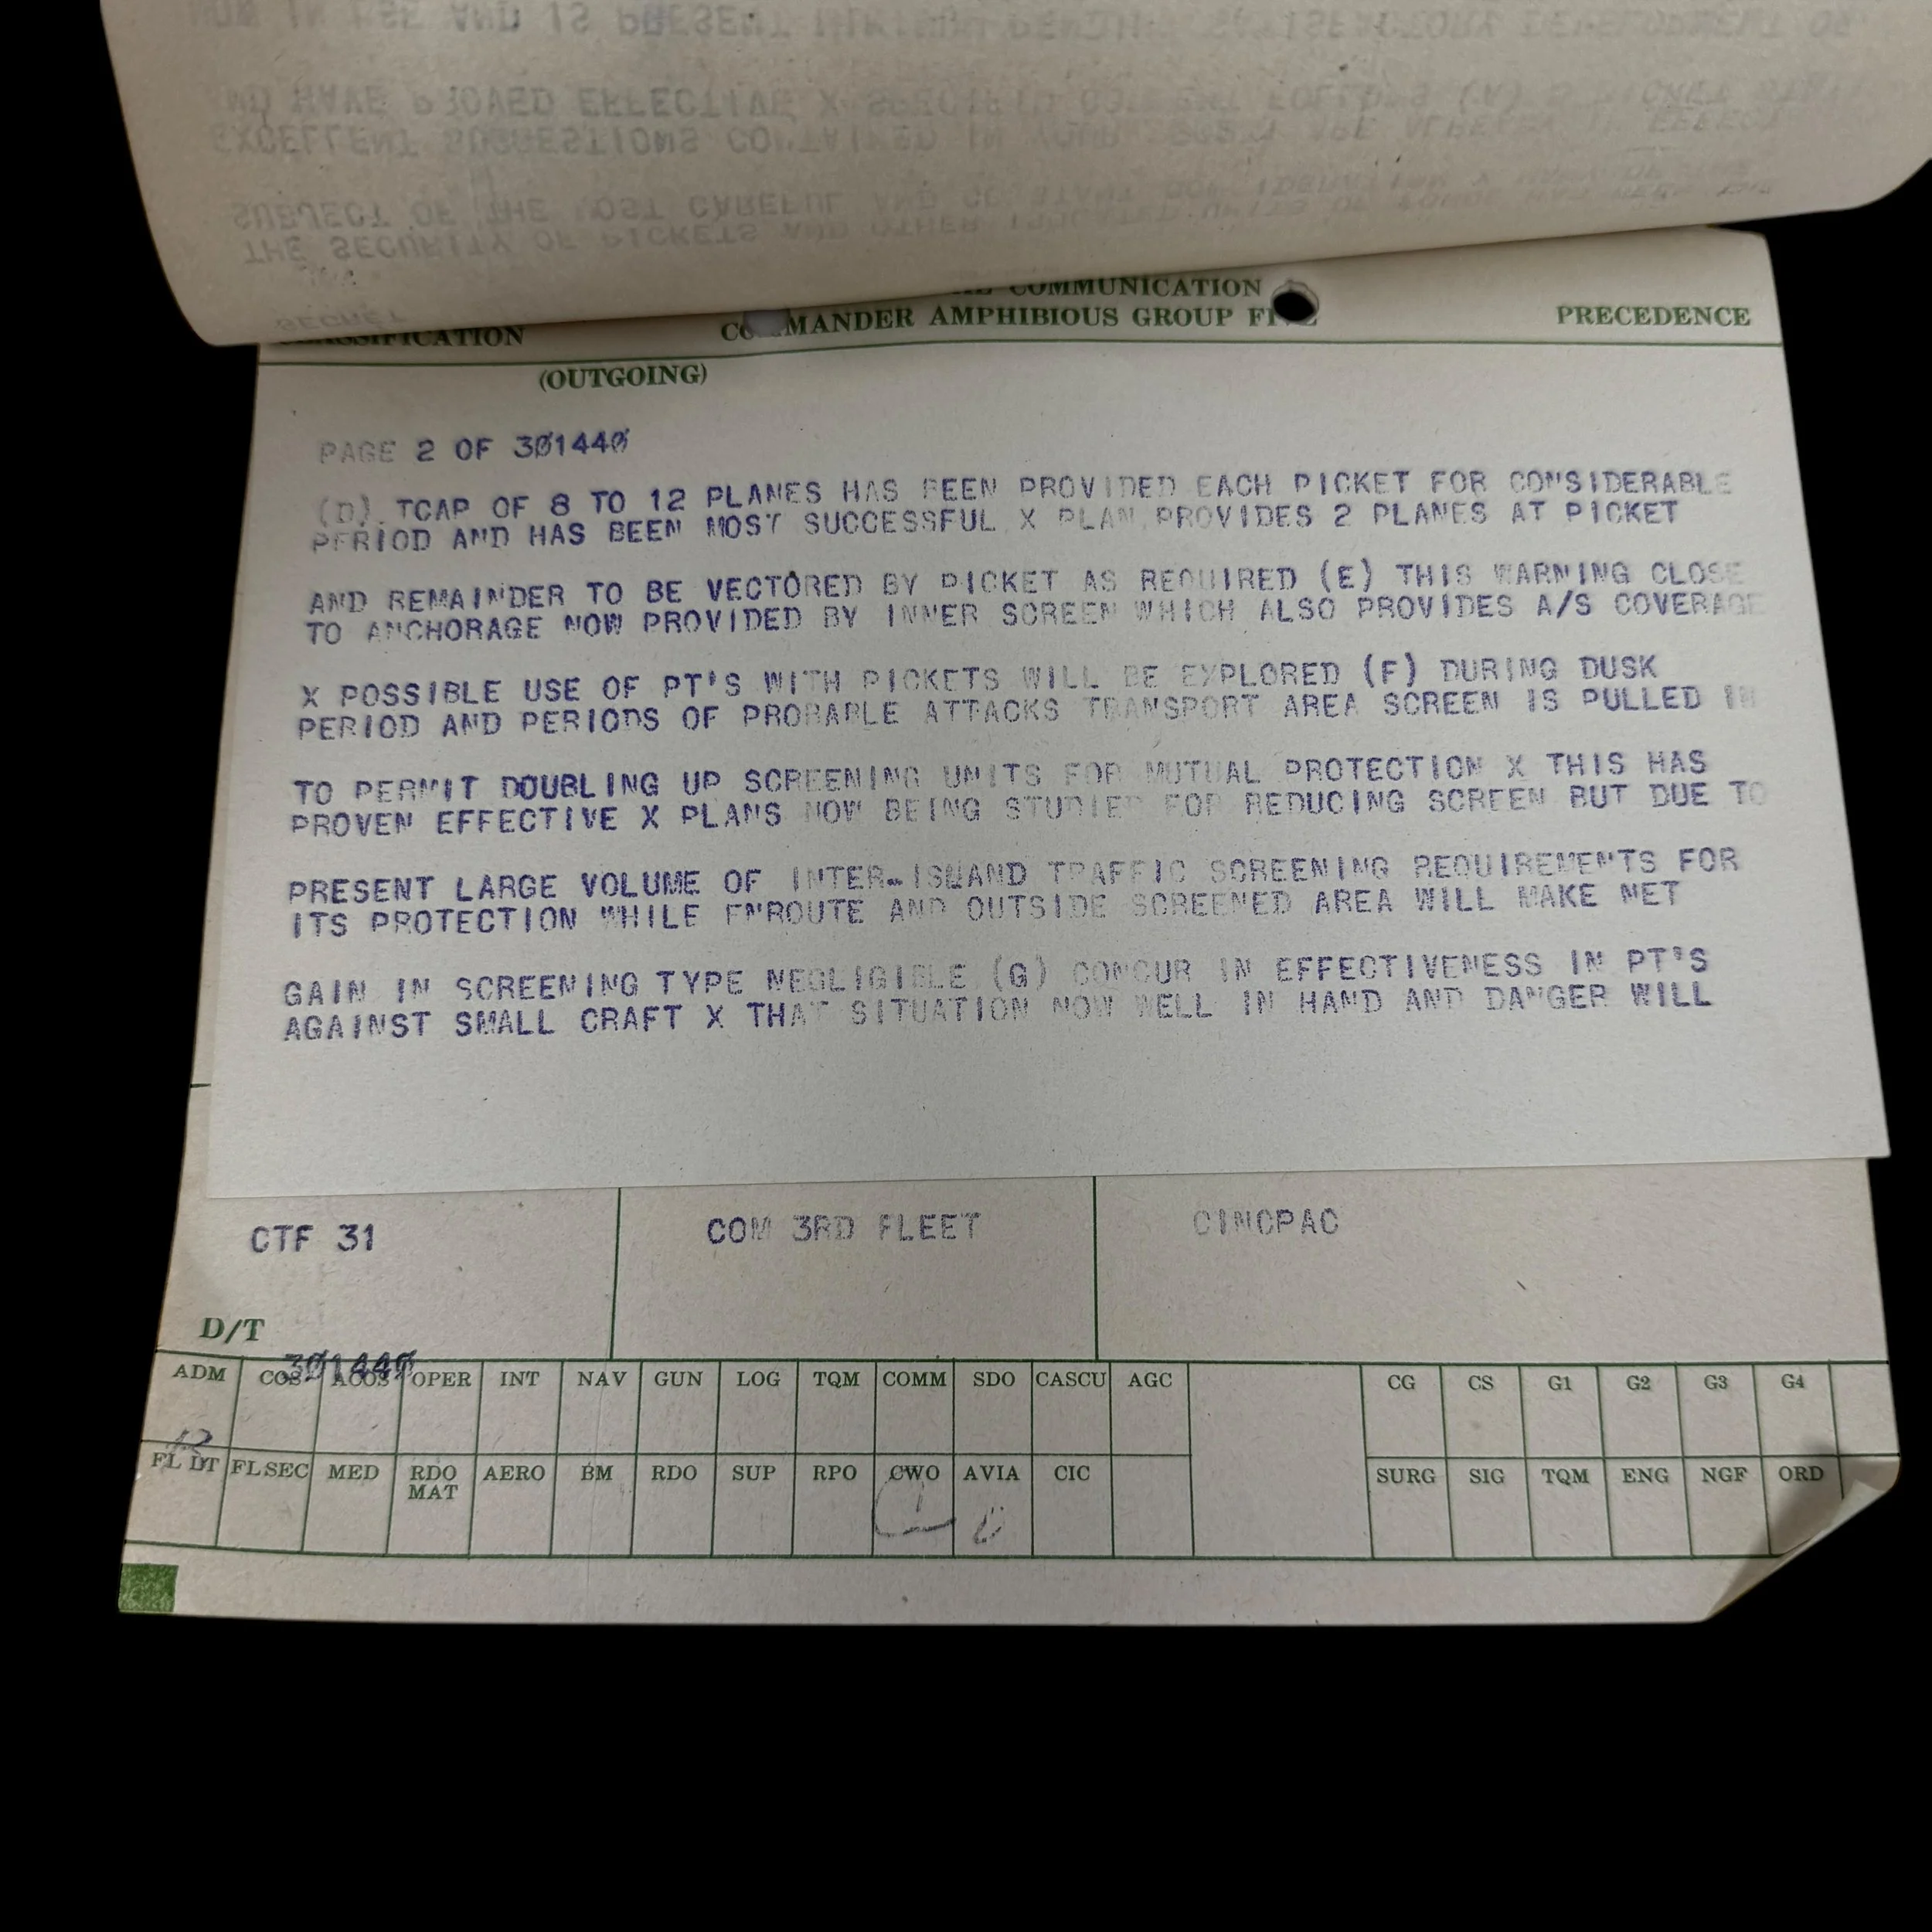 SECRET
THE SECURITY OF PICKETS AND OTHER ISOLATED UNITS OF
SUBJECT OF THE MOST CAREFUL AND CONSTANT
EXCELLENT SUGGESTIONS CONTAINED IN YOUR ARE ALREADY IN EFFECT
AND HAVE PROVED EFFECTIVE X SPECIFIC COMMENT FOLLOWS (A)
IN USE AND IS PRESENT SATISFACTORY DEVELOPMENT OF
COMMUNICATION
CLASSIFICATION COMMANDER AMPHIBIOUS GROUP FIVE PRECEDENCE
(OUTGOING)
PAGE 2 OF 301440
(D). TCAP OF 8 TO 12 PLANES HAS BEEN PROVIDED EACH PICKET FOR CONSIDERABLE
PERIOD AND HAS BEEN MOST SUCCESSFUL X PLAN PROVIDES 2 PLANES AT PICKET
AND REMAINDER TO BE VECTORED BY PICKET AS REQUIRED (E) THIS WARNING CLOSE
TO ANCHORAGE NOW PROVIDED BY INNER SCREEN WHICH ALSO PROVIDES A/S COVERAGE
X POSSIBLE USE OF PT'S WITH PICKETS WILL BE EXPLORED (F) DURING DUSK
PERIOD AND PERIODS OF PROBABLE ATTACKS TRANSPORT AREA SCREEN IS PULLED IN
TO PERMIT DOUBLING UP SCREENING UNITS FOR MUTUAL PROTECTION X THIS HAS
PROVEN EFFECTIVE X PLANS NOW BEING STUDIED FOR REDUCING SCREEN BUT DUE TO
PRESENT LARGE VOLUME OF INTER-ISLAND TRAFFIC SCREENING REQUIREMENTS FOR
ITS PROTECTION WHILE ENROUTE AND OUTSIDE SCREENED AREA WILL MAKE NET
GAIN IN SCREENING TYPE NEGLIGIBLE (G) CONCUR IN EFFECTIVENESS IN PT'S
AGAINST SMALL CRAFT X THAT SITUATION NOW WELL IN HAND AND DANGER WILL
CTF 31 COM 3RD FLEET CINCPAC
D/T
301440
ADM COS ACOS OPER INT NAV GUN LOG TQM COMM SDO CASCU AGC CG CS G1 G2 G3 G4
FL DT FLSEC MED RDO MAT AERO BM RDO SUP RPO CWO AVIA CIC SURG SIG TQM ENG NGF ORD